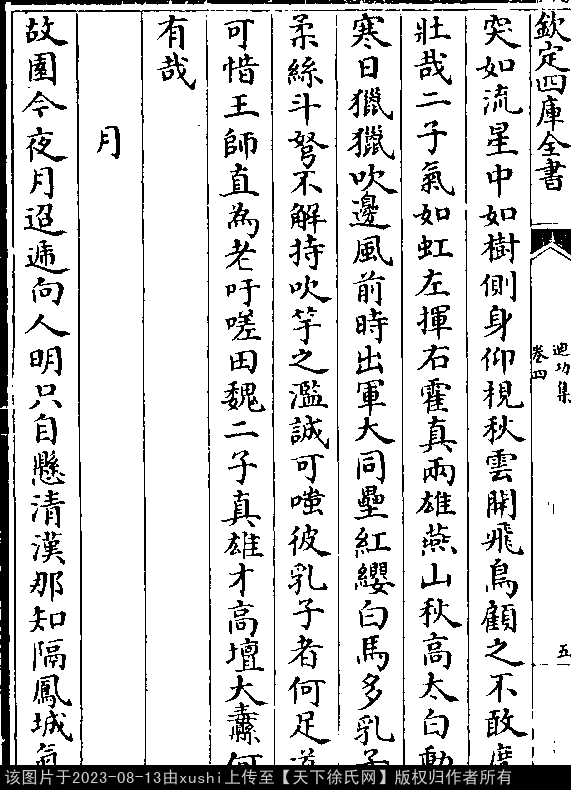 欽定四庫全書
迪功集
卷四
五
突如流星中如樹側身仰視秋雲開飛鳥顧之不敢度
壯哉二子氣如虹左揮右霍真兩雄燕山秋高太白動
寒日獵獵吹邊風前時出軍大同壘紅纓白馬多乳子
柔絲斗弩不解持吹竽之濫誠可嗤彼乳子者何足道
可惜王師直為老吁嗟田魏二子真雄才高壇大纛何
有哉
月
故園今夜月迢遞向人明只自懸清漢那知隔鳳城氣
该图片于2023-08-13由xushi上传至【天下徐氏网】版权归作者所有